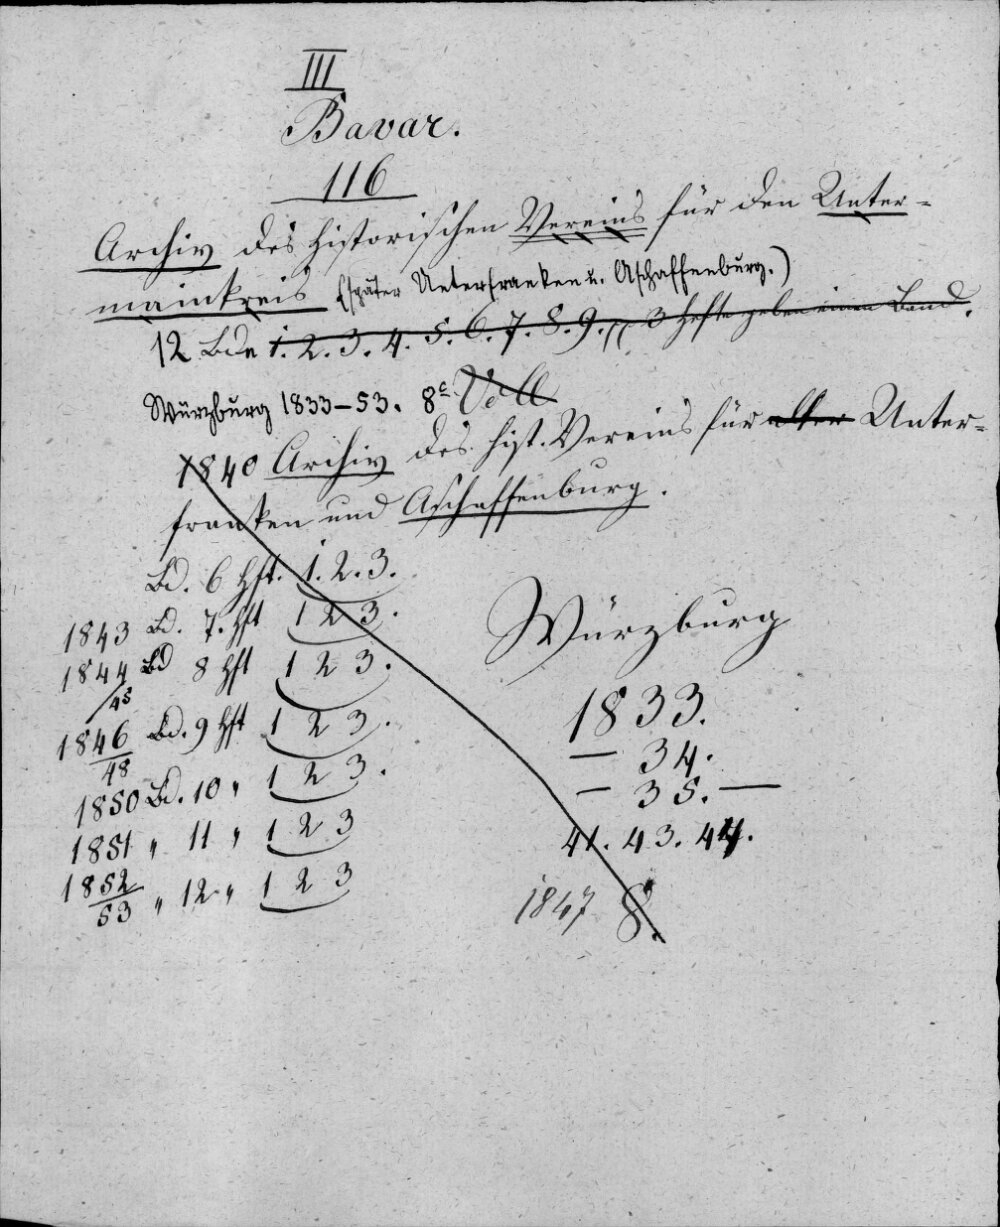 III
Bavar.
116
Archiv des historischen Vereins für den Unter-
mainkreis (später Unterfranken u. Aschaffenburg.)
12 Bde 1. 2. 3. 4. 5. 6. 7. 8. 9. 3 Hefte geben einen Band.
Würzburg 1833-53. 8°
1840 Archiv des hist. Vereins für Unter-
franken und Aschaffenburg.
Bd. 6 Hft. 1. 2. 3.
1843 Bd. 7. Hft 1 2 3.
1844/45 Bd 8 Hft 1 2 3.
1846/48 Bd. 9 Hft 1 2 3.
1850 Bd. 10 " 1 2 3.
1851 " 11 " 1 2 3
1852/53 " 12 " 1 2 3
Würzburg
1833.
— 34.
— 35. —
41. 43. 44.
1847 8.